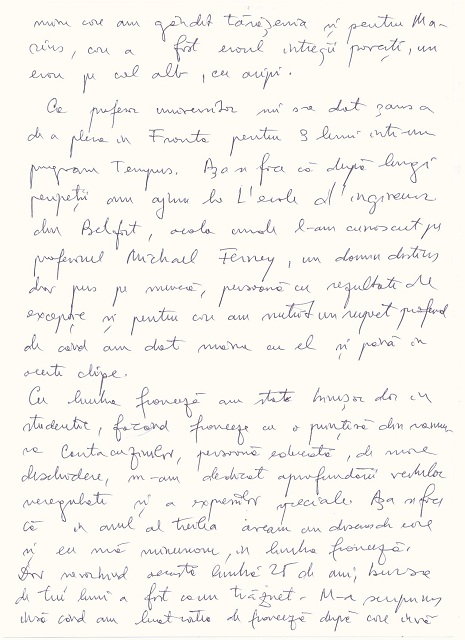 mine care am gândit tărăşenia şi pentru Ma-
rius, cou a fost eroul întregii poveşti, un
erou pe cal alb, cu aripi.
Ca profesor universitar mi s-a dat şansa
de a pleca in Franta pentru 3 luni intr-un
program Tempus. Aşa se face că după lungi
peripeţii am ajuns la L'ecole d'ingineurs
din Belfort, acolo unde l-am cunoscut pe
profesorul Michael Ferney, un domn distins
dar pus pe muncă, persoană cu rezultate de
excepţie şi pentru care am nutrit un respect profund
de când am dat mâna cu el şi până in
aceste clipe.
Cu limba franceză am stat binişor din
studentie, făcând franceza cu o
Cantacuzinilor, persoană educată, de mare
deschidere, m-am dedicat aprofundării verbelor
neregulate şi a expresiilor speciale. Aşa se face
că in anul al treilea aveam un discurs de care
şi eu mă minunam, in limba franceză.
Dar nevorbind această limbă 25 de ani, bursa
de trei luni a fost ca un trăznet. M-a surprins
însă când am luat de franceză după care însă